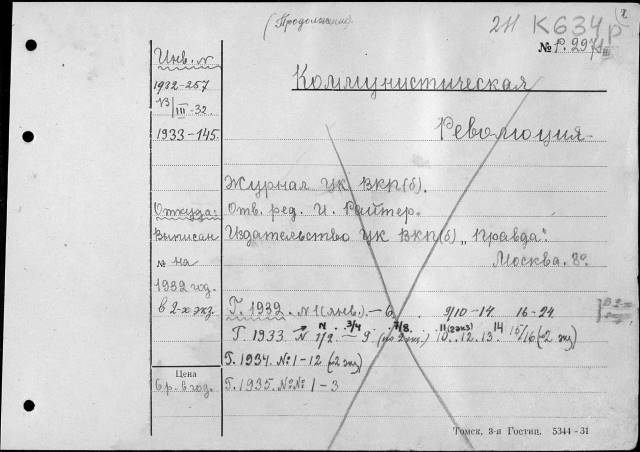 (Продолжение)
2
211 К634р
№ Р.2971
Инв. N
1932-257
13/III-32.
1933-145.
Коммунистическая
Революция
Журнал ЦК ВКП(б).
Откуда:
Отв. ред. И. Райтер.
Выписан
Издательство ЦК ВКП(б) „Правда".
№ на
Москва. 8о.
1932 год.
в 2-х экз.
Г. 1932. N 1 (янв.) - 6, 9/10-14. 16-24
В 2-х
Г. 1933 N 1/2 3/4 7/8 - 9 (по 2 экз.) 10. 11 (2 экз) 12. 13. 14 15/16 (2 экз)
Г. 1934. № 1-12 (2 экз)
Цена
6 р. в год.
Г. 1935. №№ 1-3
Томск, 3-я Гостип. 5344-31